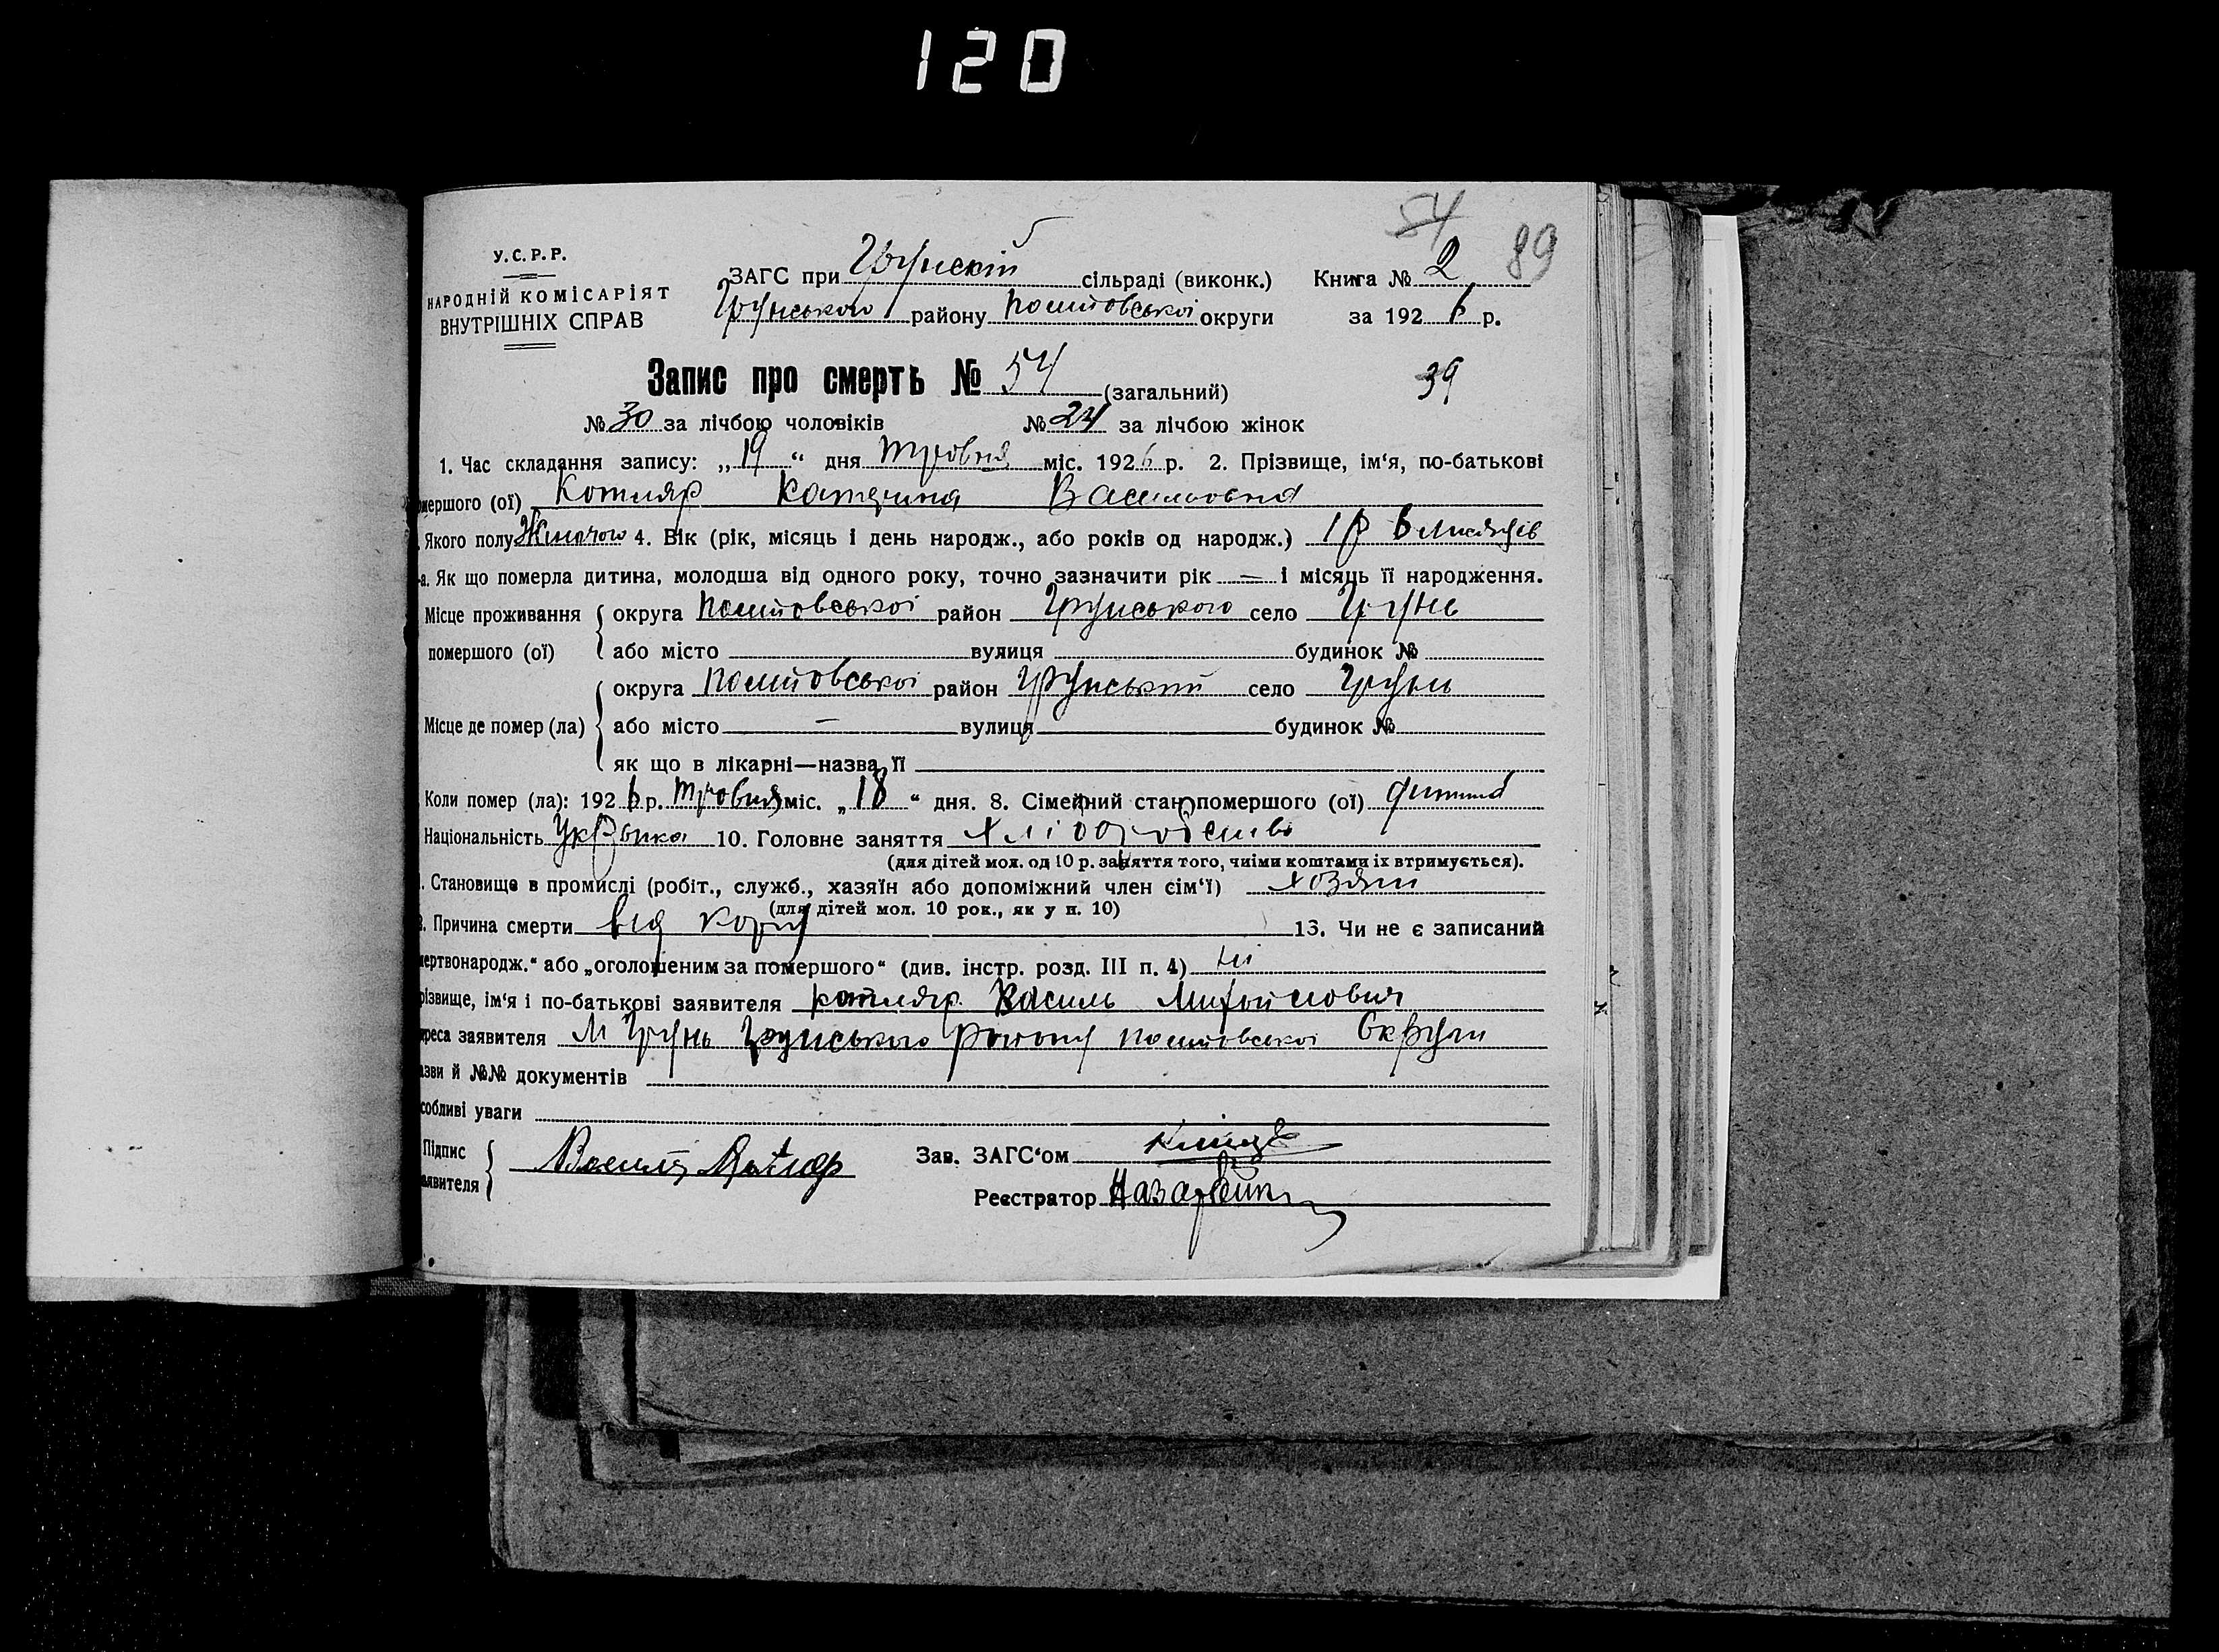 120
54 89
У.С.Р.Р.
НАРОДНІЙ КОМІСАРІЯТ
ВНУТРІШНІХ СПРАВ
ЗАГС при Грунскій сільраді (виконк.) Книга № 2
Грунського району Полтовської округи за 1926 р.
Запис про смерть № 54 (загальний) 39
№ 30 за лічбою чоловіків № 24 за лічбою жінок
1. Час складання запису: „ 19 “ дня Тровня міс. 1926 р. 2. Прізвище, ім‘я, по-батькові
мершого (ої) Котляр Катерина Васильовна
Якого полу Жіночого 4. Вік (рік, місяць і день народж., або років од народж.) 1 р 6 місяців
а. Як що померла дитина, молодша від одного року, точно зазначити рік — і місяць її народження.
Місце проживання округа Полтовської район Грунського село Грунь
помершого (ої) або місто вулиця будинок №
округа Полтовської район Грунський село Грунь
Місце де помер (ла) або місто — вулиця будинок №
як що в лікарні—назва її
Коли помер (ла): 1926 р. Тровня міс. „ 18 “ дня. 8. Сімейний стан помершого (ої) дитина
Національність Укройнка 10. Головне заняття хліборобство
(для дітей мол. од 10 р. заняття того, чиїми коштами їх втримується).
. Становище в промислі (робіт., служб., хазяїн або допоміжний член сім‘ї) хозяїн
(для дітей мол. 10 рок., як у п. 10)
. Причина смерти від кору 13. Чи не є записаний
мертвонародж.“ або „оголошеним за помершого“ (див. інстр. розд. III п. 4) ні
різвище, ім‘я і по-батькові заявителя Котляр Василь Михойлович
реса заявителя М Грунь Грунського Району Полтовської Округи
азви й №№ документів
собливі уваги
Підпис
аявителя Василь Котляр Зав. ЗАГС‘ом
Реєстратор